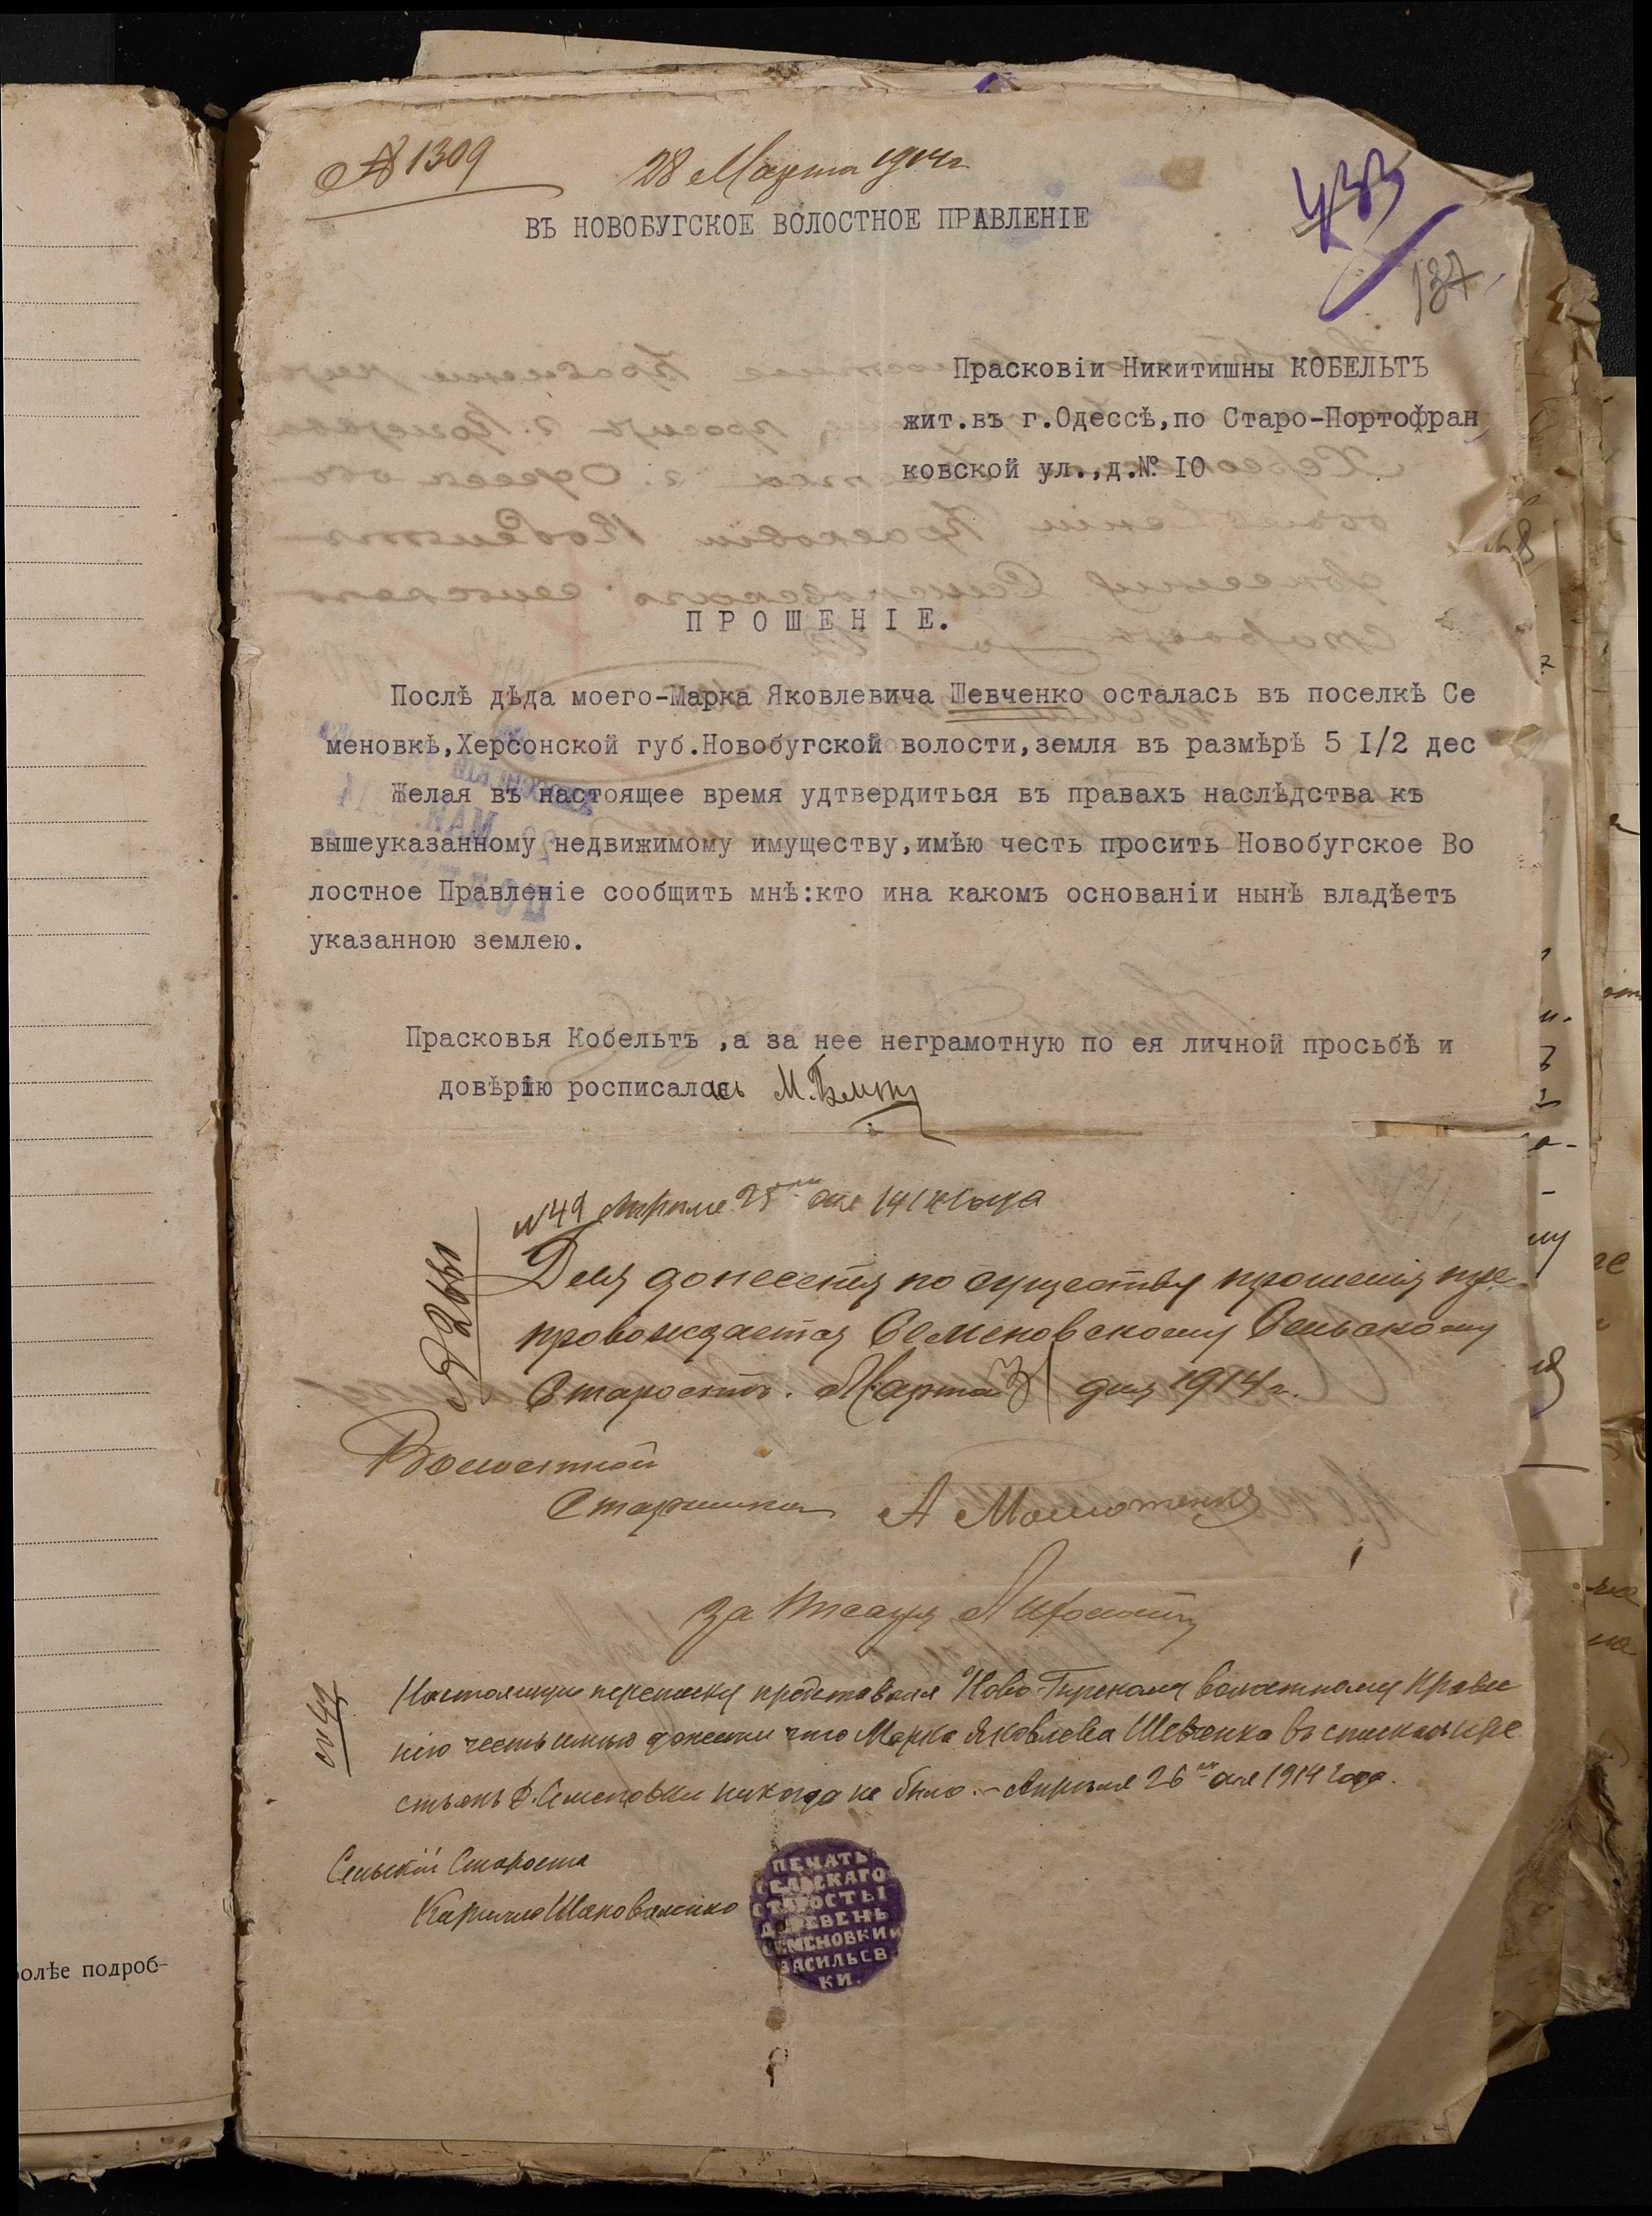 № 1309
28 Марта 1914 г.
433
137
ВЪ НОВОБУГСКОЕ ВОЛОСТНОЕ ПРАВЛЕНІЕ
Прасковіи Никитишны КОБЕЛЬТЪ
жит.въ г.Одессѣ,по Старо-Портофран
ковской ул.,д.№ IO
ПРОШЕНІЕ.
Послѣ дѣда моего-Марка Яковлевича Шевченко осталась въ поселкѣ Се
меновкѣ,Херсонской губ.Новобугской волости,земля въ размѣрѣ 5 I/2 дес
Желая въ настоящее время удтвердиться въ правахъ наслѣдства къ
вышеуказанному недвижимому имуществу,имѣю честь просить Новобугское Во
лостное Правленіе сообщить мнѣ:кто ина какомъ основаніи нынѣ владѣетъ
указанною землею.
Прасковья Кобельтъ ,а за нее неграмотную по ея личной просьбѣ и
довѣрію росписалась М.
№ 49 Апреля 25 дня 1914 года
№ 2660
Для донесенія по существу прошенія пре-
провождается Семеновскому Сельскому
Старостѣ. Марта 31 дня 1914 г.
Волостной
Старшина А Молотенко
За Писаря
Настоящую переписку представляя Ново-Бугскому волостному Правле
нію честь имѣю донести что Марка Яковлева Шевченка въ спискахъ кре
стьянъ д. Семеновки никогда не было.- Апрѣля 26 дня 1914 года.
Сельскій Староста
Кирило Шаповаленко
ПЕЧАТЬ
СЕЛЬСКАГО
СТАРОСТЫ
ДЕРЕВЕНЬ
СЕМЕНОВКИ и
ВАСИЛЬЕВ
КИ.
болѣе подроб-